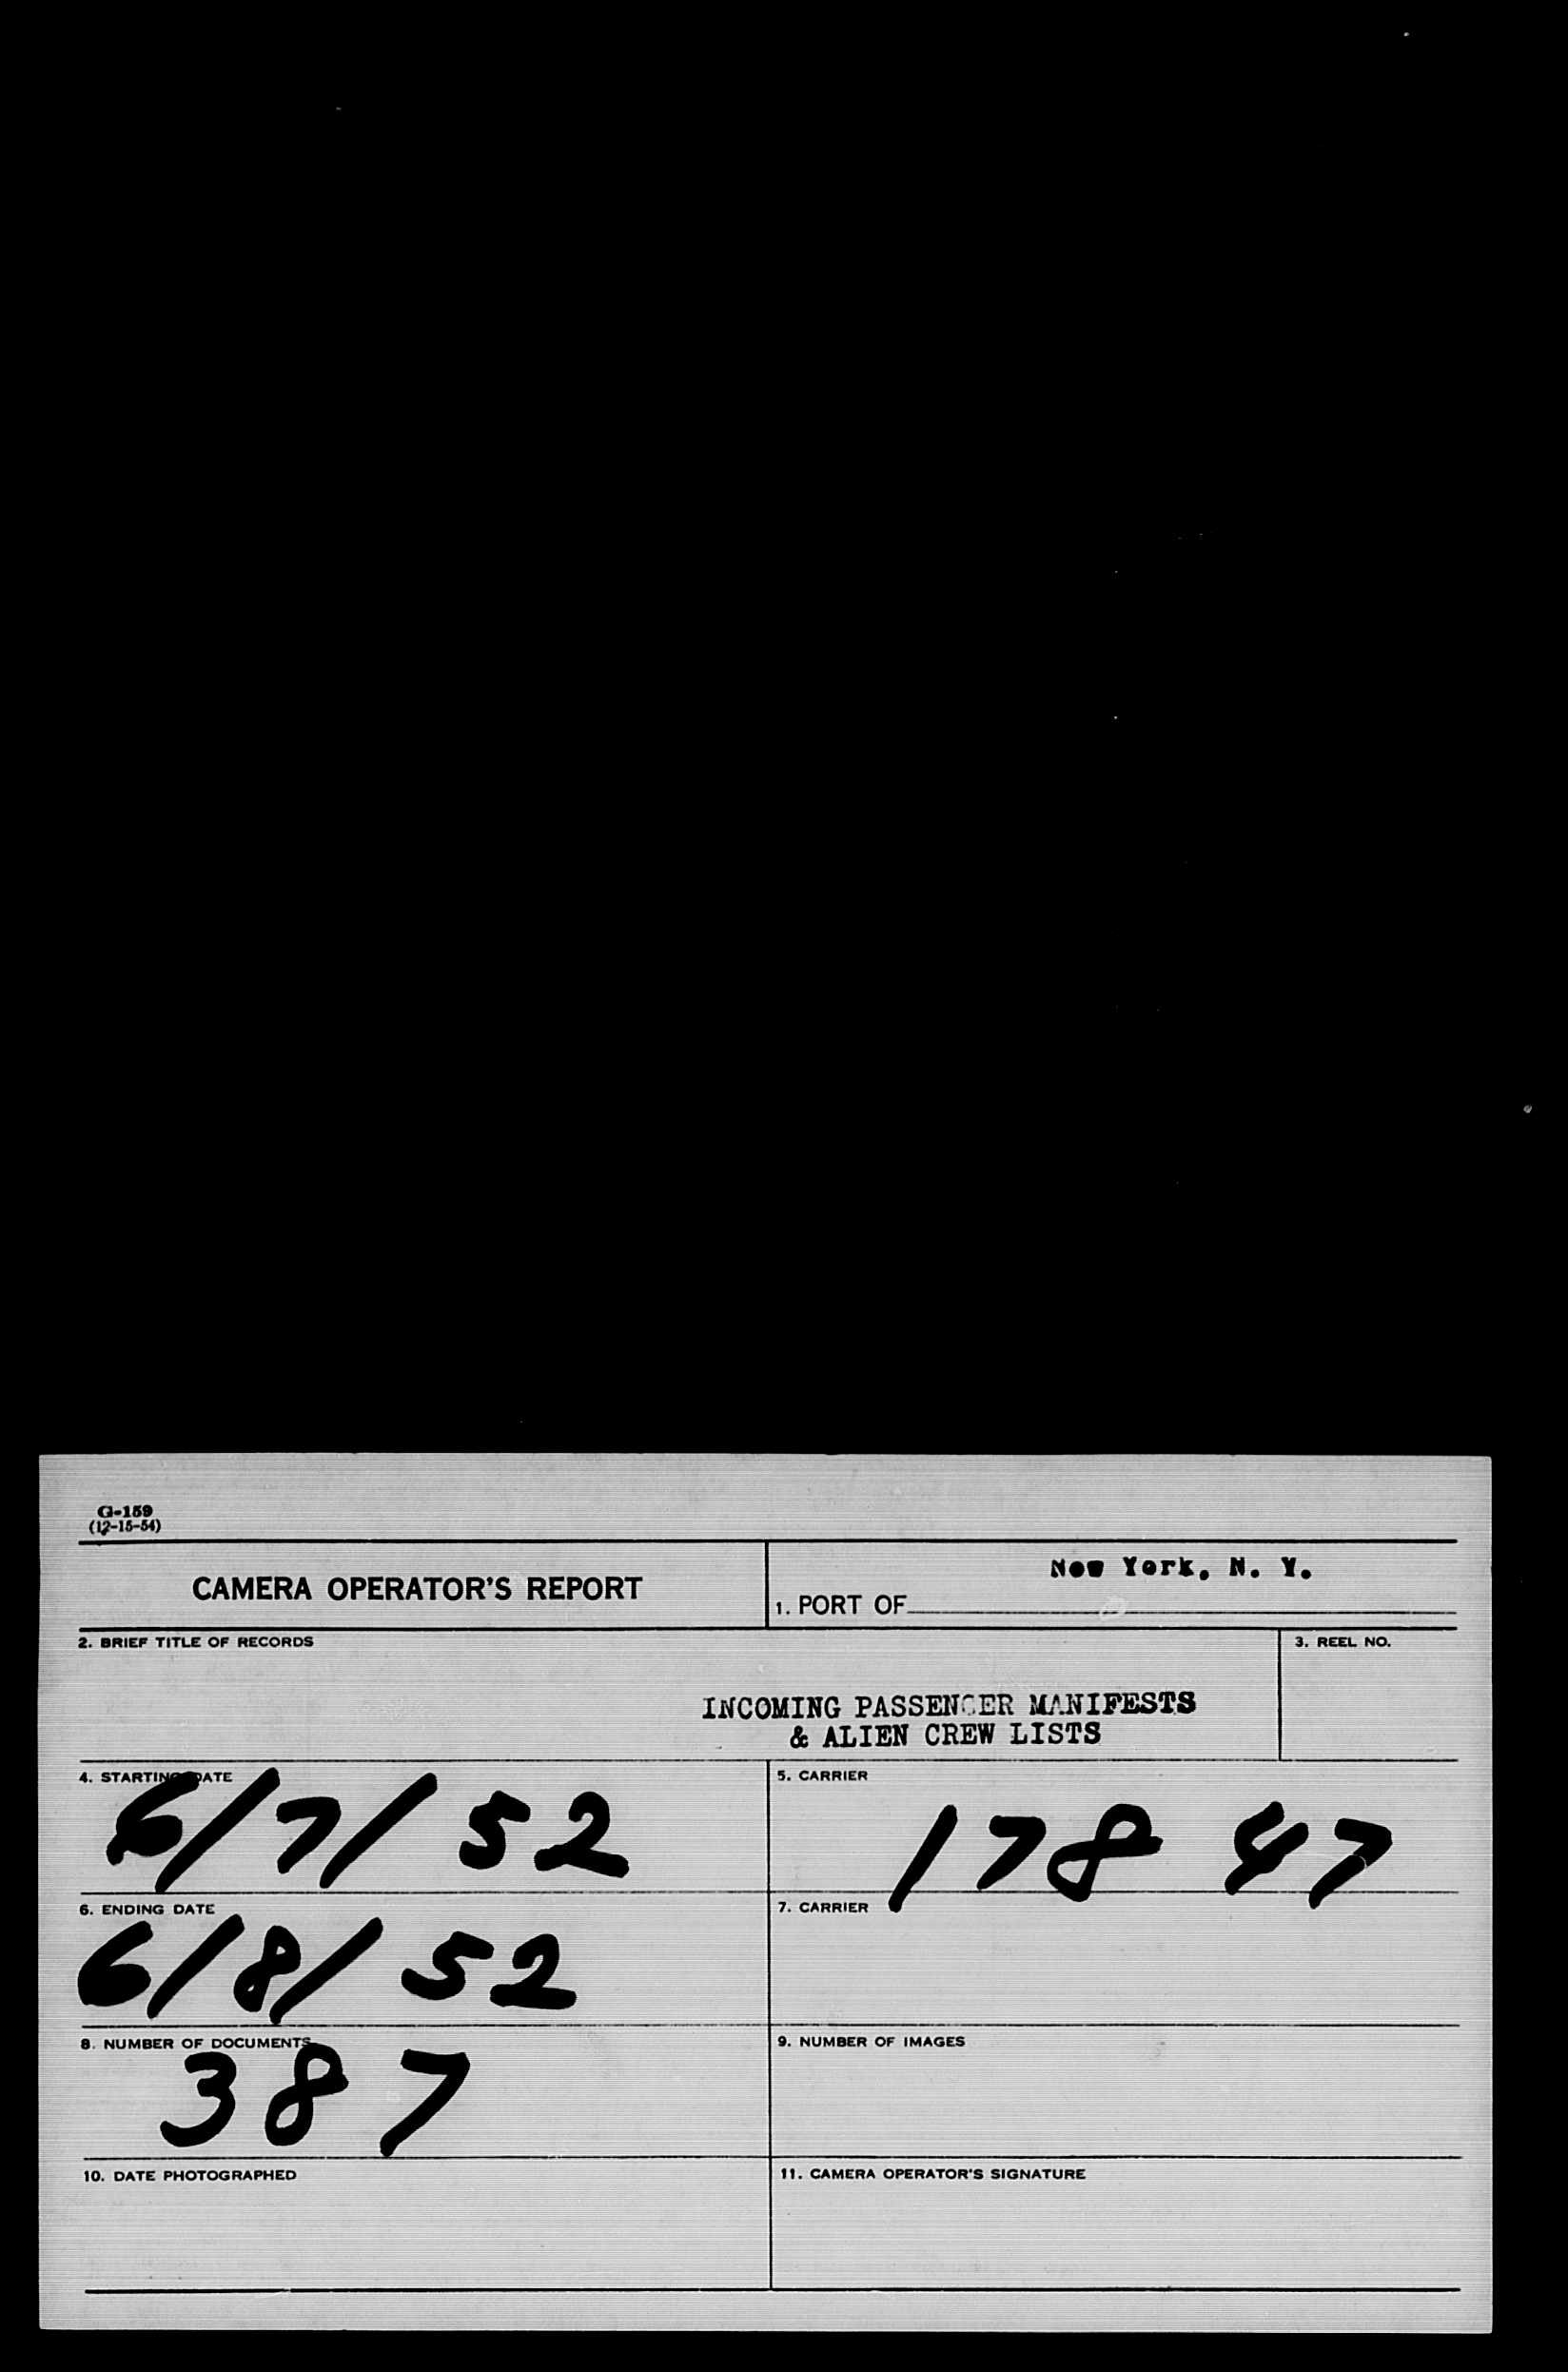 G-159
(12-15-54)
CAMERA OPERATOR'S REPORT
New York, N. Y.
1. PORT OF
2. BRIEF TITLE OF RECORDS
3. REEL NO.
INCOMING PASSENGER MANIFESTS
& ALIEN CREW LISTS
4. STARTING DATE
6/7/52
5. CARRIER
178 47
6. ENDING DATE
6/8/52
7. CARRIER
8. NUMBER OF DOCUMENTS
387
9. NUMBER OF IMAGES
10. DATE PHOTOGRAPHED
11. CAMERA OPERATOR'S SIGNATURE